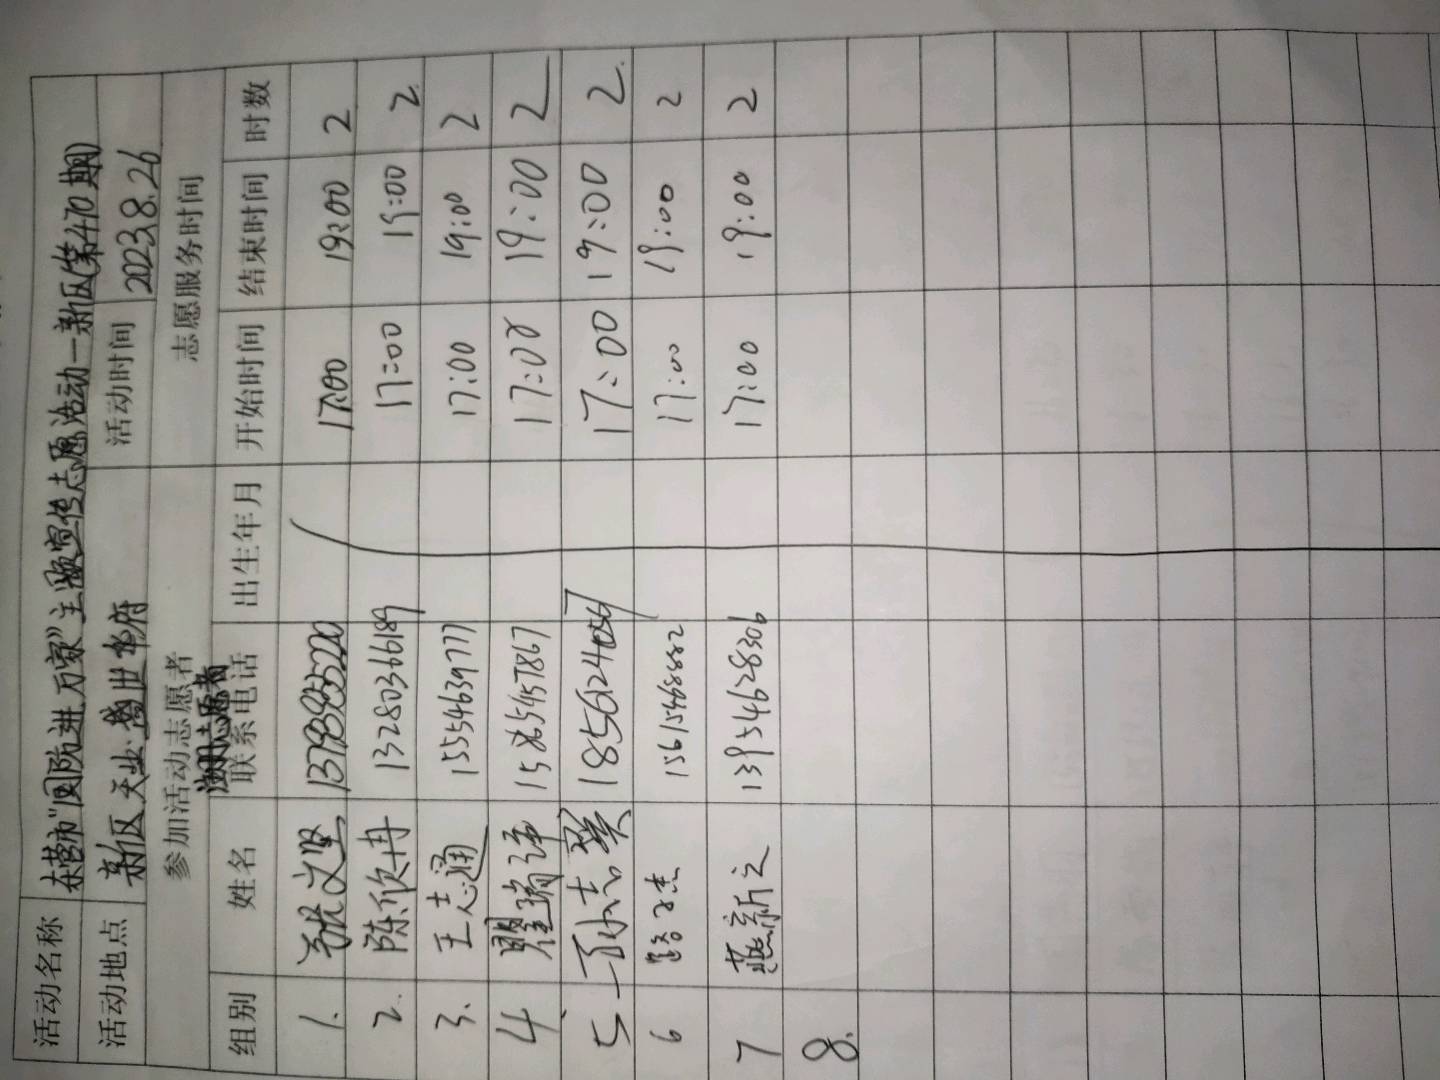 活动名称 东营市"国防进万家"主题宣传志愿活动—新区(第470期)
活动地点 新区天业·盛世华府 活动时间 2023.8.26
参加活动志愿者 志愿服务时间
注册志愿者
组别 姓名 联系电话 出生年月 开始时间 结束时间 时数
1. 文坚 17:00 19:00 2
2. 陈欣冉 13280366189 17:00 19:00 2
3. 王志通 15554639777 17:00 19:00 2
4 瞿瑞泽 15865457867 17:00 19:00 2
5 孙志赛 17:00 19:00 2
6 15615468882 17:00 19:00 2
7 燕新之 13954628306 17:00 19:00 2
8.